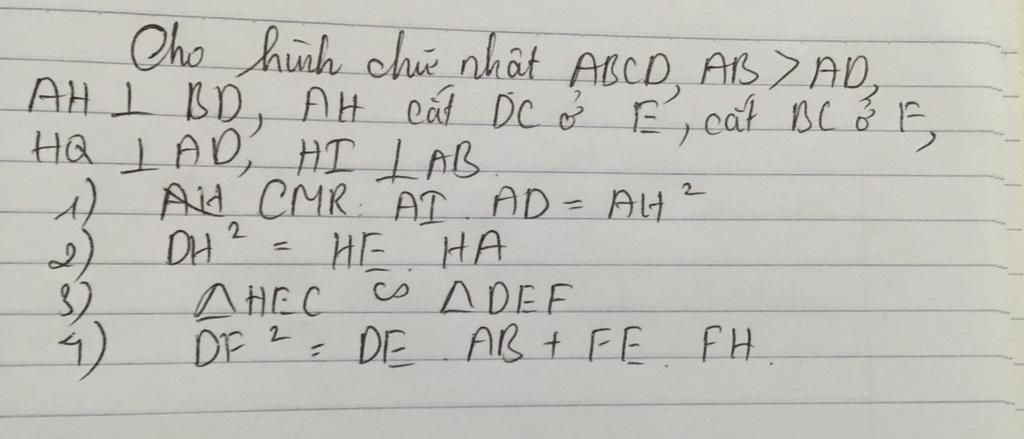 Cho hình chữ nhật ABCD, AB > AD,
AH ⊥ BD, AH cắt DC ở E, cắt BC ở F,
HQ ⊥ AD, HI ⊥ AB.
1) CMR: AI . AD = AH²
2) DH² = HE . HA
3) △HEC ∽ △DEF
4) DF² = DE . AB + FE . FH.